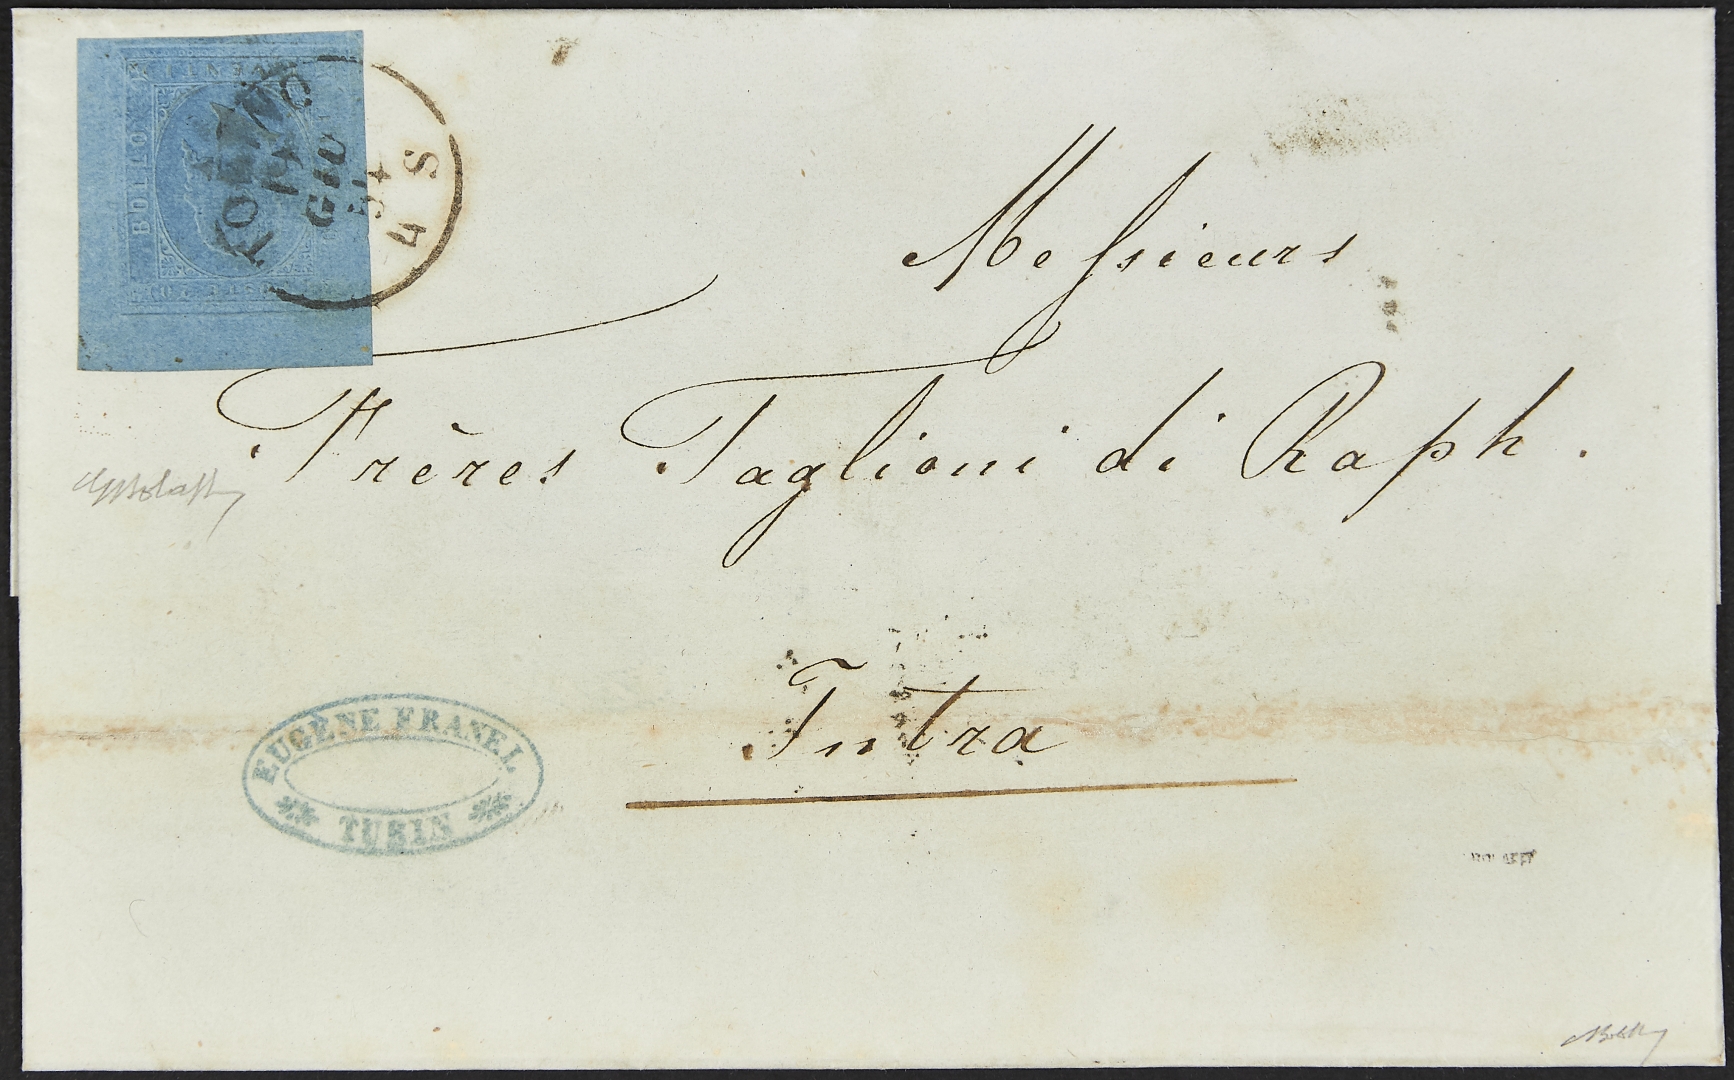 BOLLO
TORINO
14
GIU
54
4 S
Messieurs
Frères Taglioni di Raph.
Intra
EUGÈNE FRANEL
TURIN
BOLAFFI